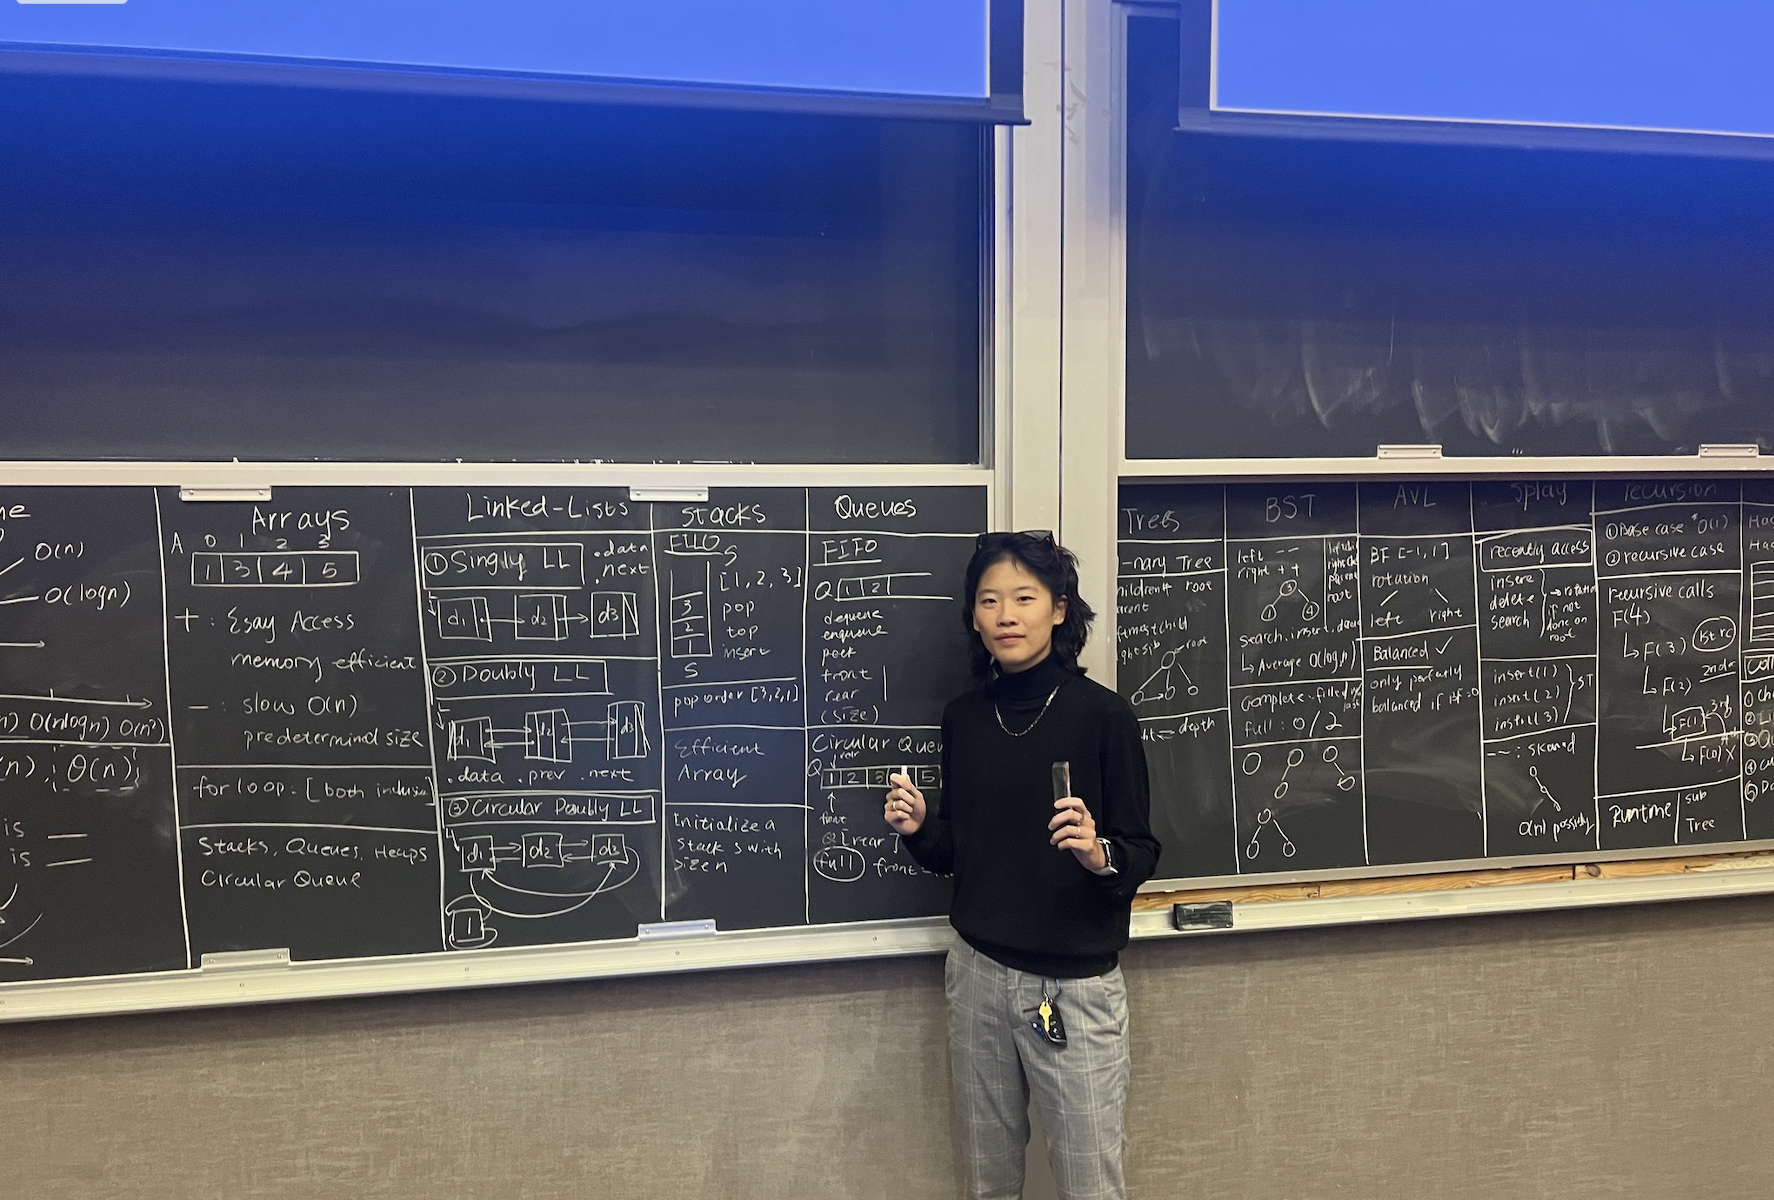 O(n)
O(logn)
O(nlogn) O(n²)
θ(n)
is
is
Arrays
A 0 1 2 3
1 3 4 5
+ : Esay Access
memory efficient
- : slow O(n)
predetermind size
for loop: [both inclusive]
Stacks, Queues, Heaps
Circular Queue
Linked-Lists
① Singly LL
.data
.next
d1 d2 d3
② Doubly LL
d1 d2 d3
.data .prev .next
③ Circular Doubly LL
d1 d2 d3
1
Stacks
FILO
S
[1, 2, 3]
3
2
1
pop
top
insert
S
pop order [3,2,1]
Efficient
Array
Initialize a
Stack S with
Size n
Queues
FIFO
Q 1 2
dequeue
enqueue
peek
front
rear
(size)
Circular Queu
rear
Q 1 2 3 5
front
Q[rear]
full front
Trees
-nary Tree
root
firstchild
root
depth
BST
left --
right ++
3
1 4
search, insert,
↳ Average O(logn)
Complete: filled
full: 0/2
AVL
BF [-1, 1]
rotation
left right
Balanced ✓
only perfectly
balanced if BF=0
Splay
recently access
insert
delete
search
→ rotation
if not
done on
root
insert(1)
insert(2)
insert(3)
ST
--: skewed
O(n) possibly
recursion
① Base case O(1)
② recursive case
recursive calls
F(4)
↳ F(3) 1st rc
↳ F(2) 2nd rc
↳ F(1) 3rd
↳ F(0) X
Runtime
sub
Tree